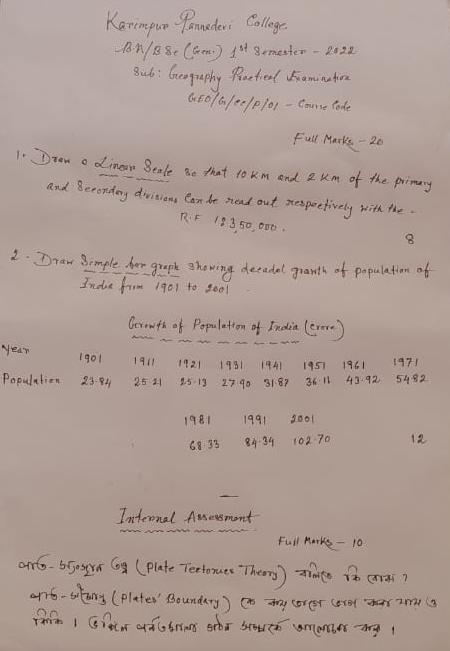 Karimpur Pannadevi College
B.A/B.Sc (Gen.) 1st Semester - 2022
Sub: Geography Practical Examination
GEO/G/CC/P/01 - Course Code
Full Marks - 20
1. Draw a Linear Scale so that 10 km and 2 km of the primary
and Secondary divisions can be read out respectively with the -
R.F 1:23,50,000.
8
2. Draw Simple bar graph showing decadal growth of population of
India from 1901 to 2001.
Growth of Population of India (crore)
Year 1901 1911 1921 1931 1941 1951 1961 1971
Population 23.84 25.21 25.13 27.90 31.87 36.11 43.92 54.82
1981 1991 2001
68.33 84.34 102.70 12
Internal Assessment
Full Marks - 10
পাত-সংস্থান তত্ত্ব (Plate Tectonics Theory) বলিতে কি বোঝ ?
পাত-সীমান্ত (Plates' Boundary) কে কয় ভাগে ভাগ করা যায় ও
কিকি । ভঙ্গিল পর্বতমালার গঠন সম্পর্কে আলোচনা কর ।